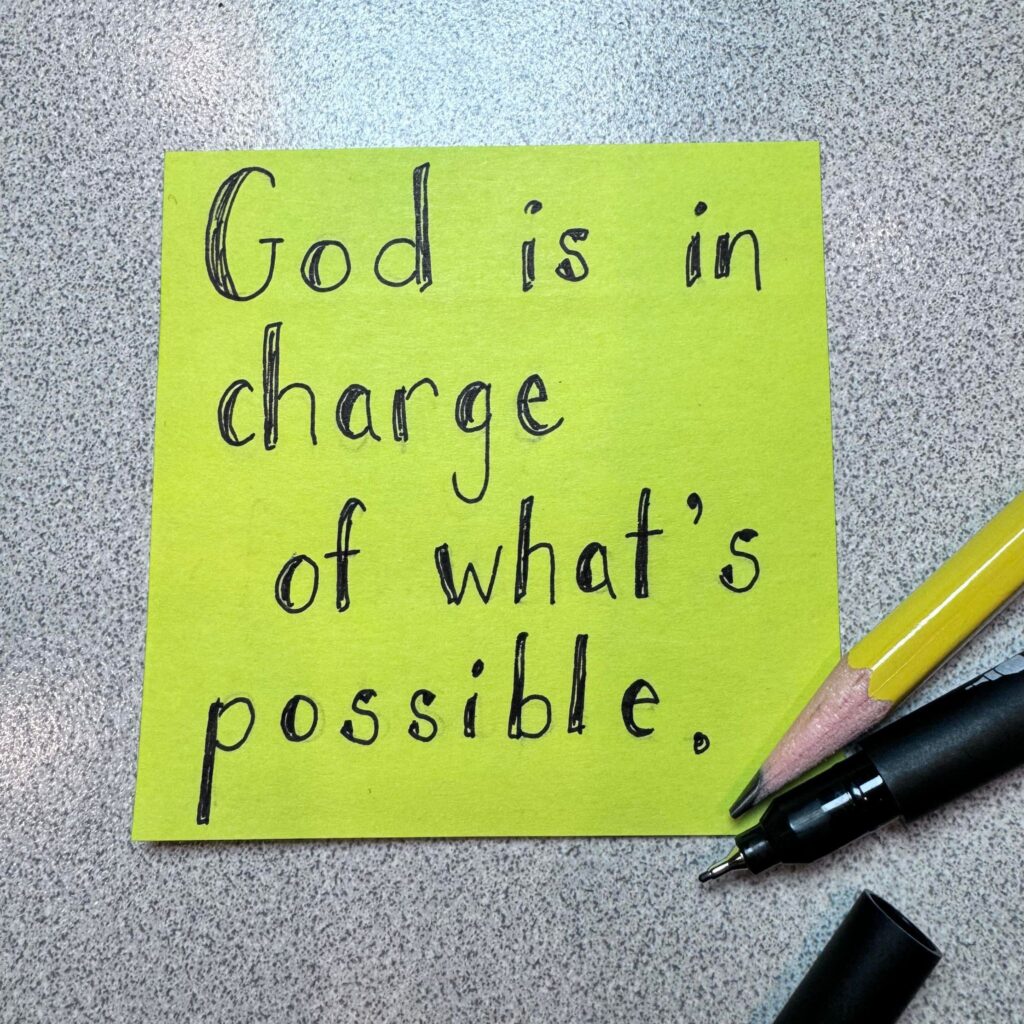 God is in
charge
of what's
possible.